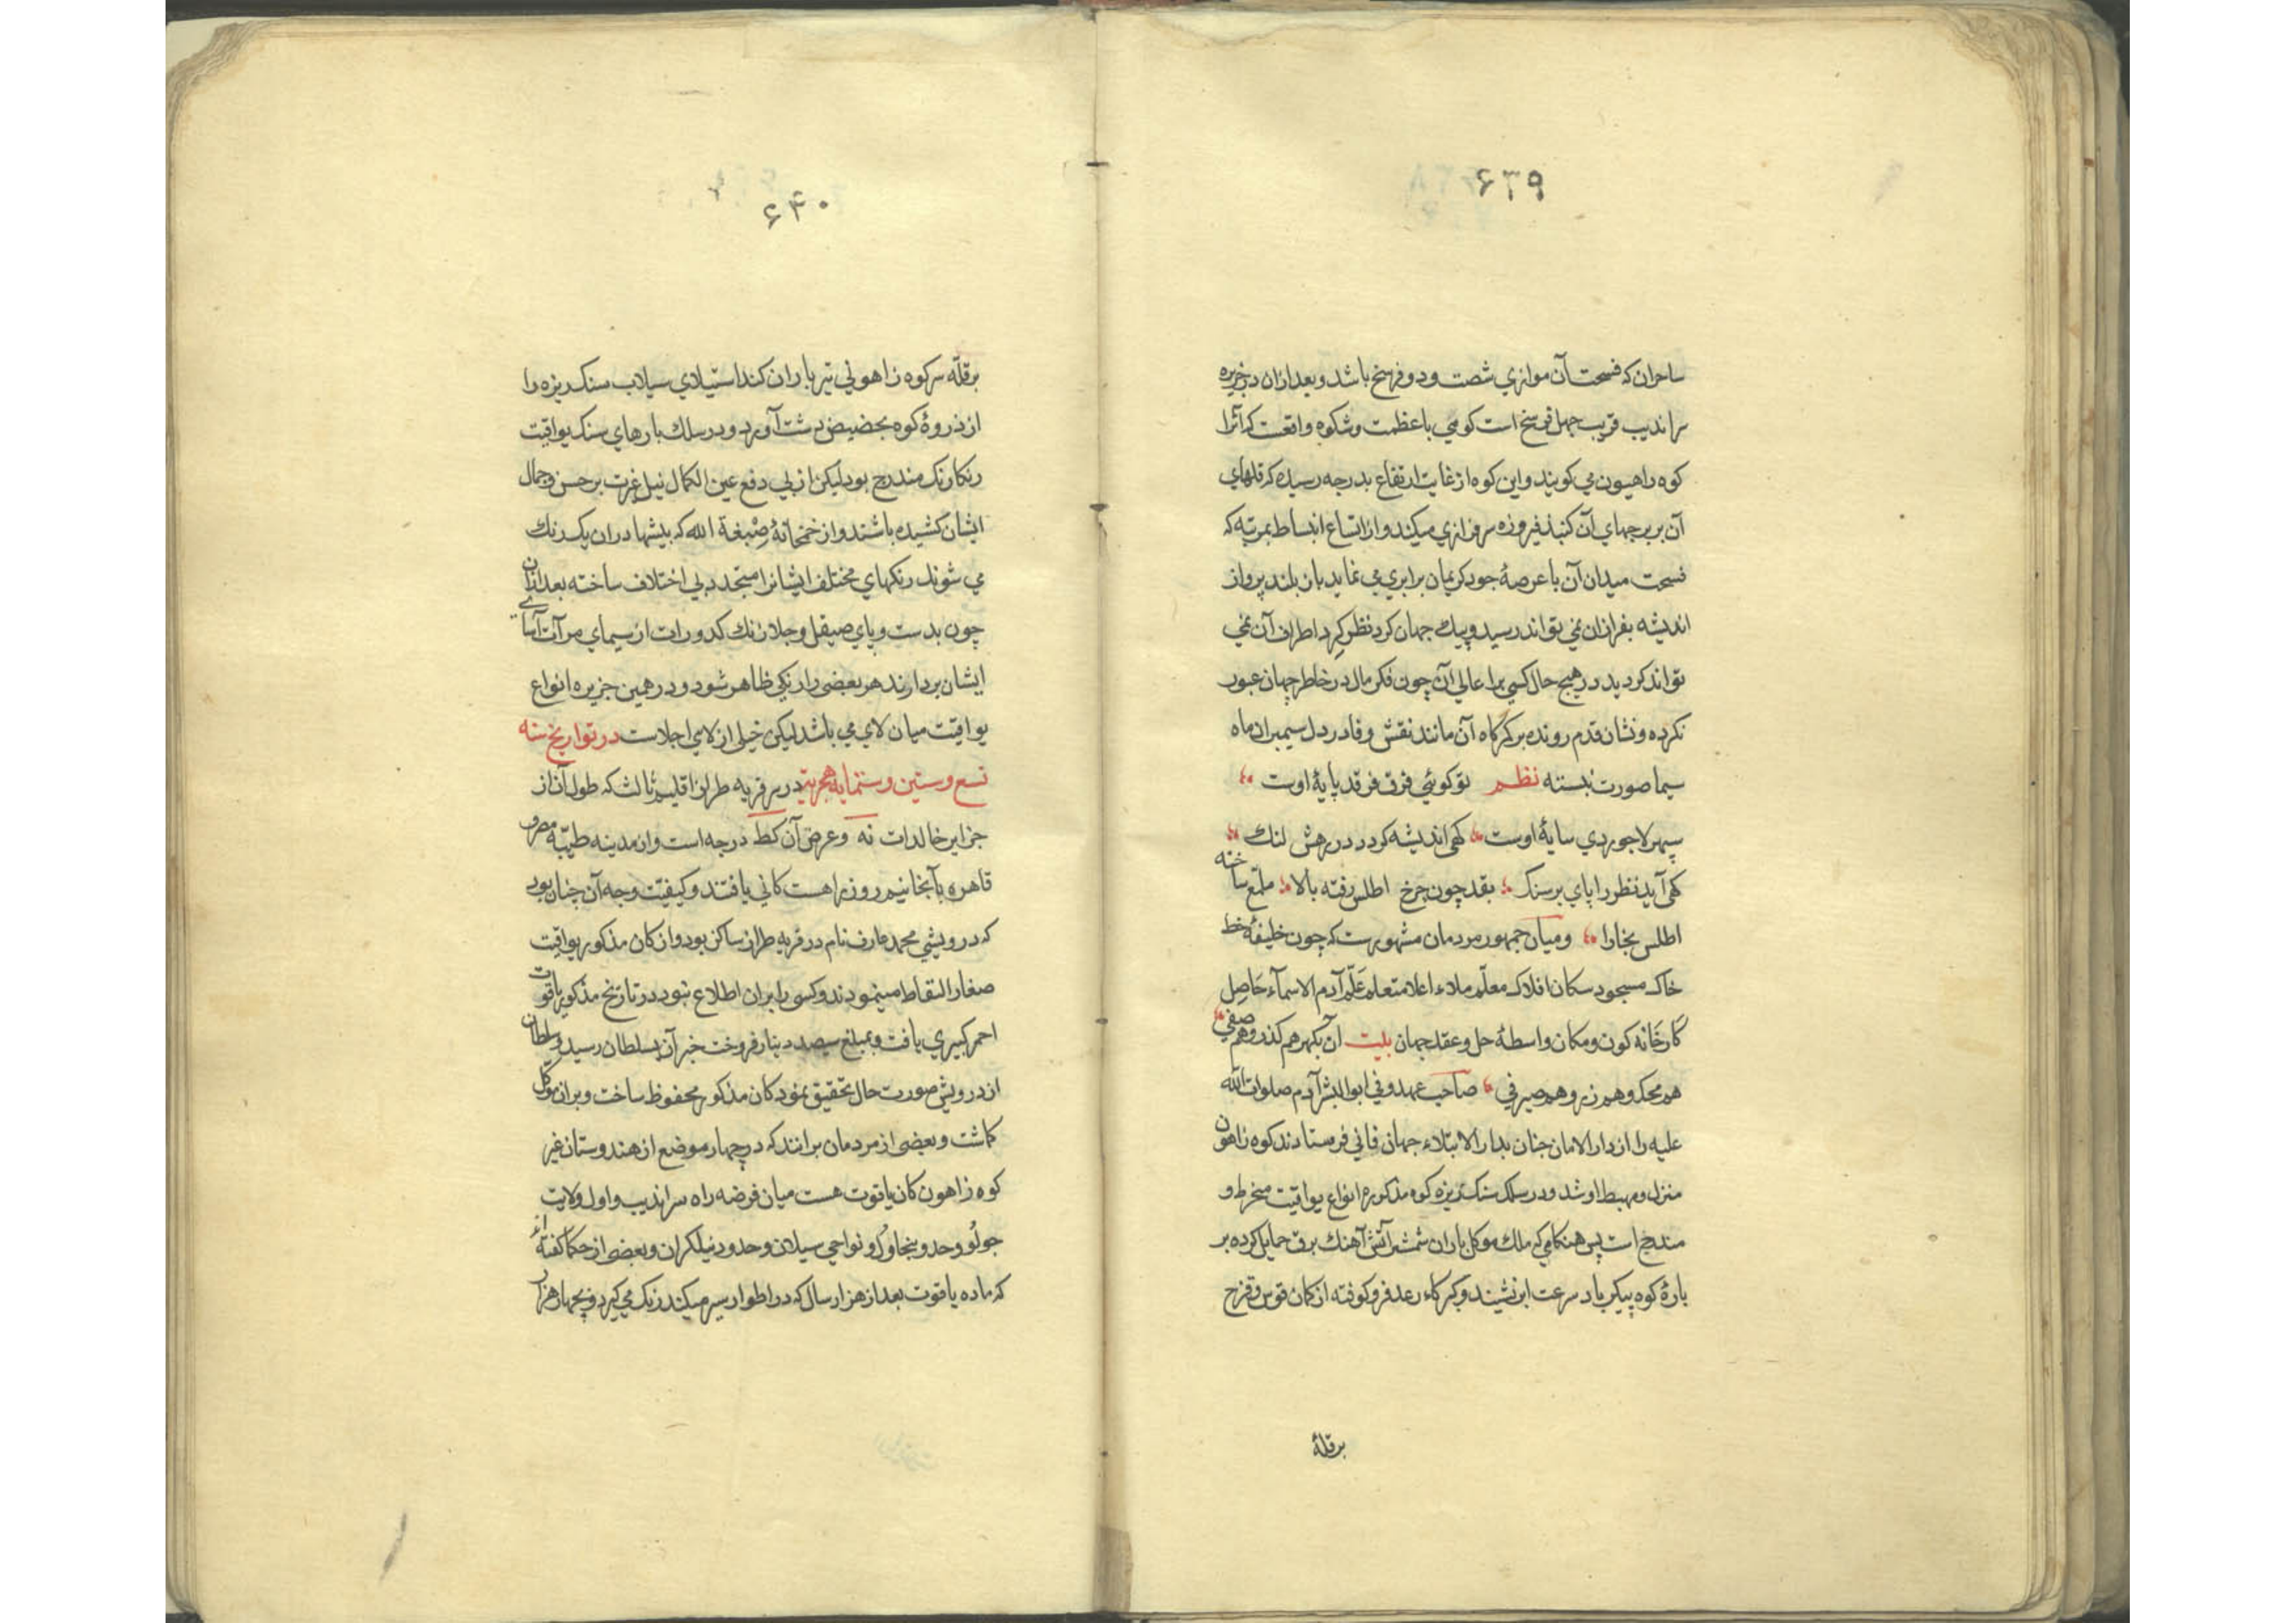 ۶۳۹
ساحران که فسحت آن موازي شصت و دو فرسخ باشد و بعد ازان در جزیره
سراندیب قریب چهل فرسخ است کوهي با عظمت و شکوه واقعست که آنرا
کوه راهیون مي کویند و این کوه از غایت ارتفاع بدرجه رسیده که قلهاي
آن بر برجهاي آن کنبذ فیروزه سرفرازي میکند و از اتساع انبساط بمرتبه که
فسحت میدان آن با عرصهٔ جود کریمان برابري مي نماید باز بلند پرواز
اندیشه بفرازان نمي تواند رسید و پیك جهان کرد نظر کرد اطراف آن نمي
تواند کردید در هیچ حال کسي برا عالي آن چون فکر مال در خاطر جهان عبور
نکرده و نشان قدم رونده بر کمرکاه آن مانند نقش وفا در دل سیمبران ماه
سیما صورت نبسته نظم تو کوئي فرق فرقد پایهٔ اوست
سپهر لاجوردي سایهٔ اوست کهی اندیشه کردد در رهش لنك
کهی آید نظر را پاي بر سنك بقد چون چرخ اطلس رفته بالا ملمّع ساخته
اطلس بخارا و میان جمهور مردمان مشهورست که چون خلیفهٔ خط
خاك مسجود سکان افلاك معلّم ملاء اعلا متعلم عَلّم آدم الاسمآء حَاصِل
کَارخَانه کون و مکان واسطهٔ حل و عقد جهان بیت آن بکهر هم کدر و هم صفي
هم محك و هم زر و هم صیرفي صاحب عهد وفي ابو البشر آدم صلوات الله
علیه را از دار الامان جنان بدار الابتلاء جهان فاني فرستادند کوه زاهون
منزل و مهبط او شد و در سلك سنك ریزه کوه مذکوره انواع یواقیت منخرط و
مندرج است پس هنکامي که ملك موکل باران شمشیر آتش آهنك برق حمایل کرده بر
بارهٔ کوه پیکر باد سرعت ابر نشیند و کبرکاء رعد فرو کوفته از کمان قوس و قزح
برقلهٔ
۶۴۰
برقلّه سر کوه زاهولي تیر باران کند استیلاي سیلاب سنك ریزه را
از ذروهٔ کوه بحضیض دشت آورد و در سلك بارهاي سنك یواقیت
رنکارنك مندرج بود لیکن از بي دفع عین الکمال نیل غیرت بر حسن و جمال
ایشان کشیده باشند و از خمخانهٔ صِبْغة الله که بیشها دران یك رنك
مي شوند رنکهاي مختلف ایشانرا متحد و بي اختلاف ساخته بعد ازان
چون بدست و پاي صیقل و جلا زنك کدورات از سیماي مرآت آساي
ایشان بردارند هر بعضی را رنکي ظاهر شود و در همین جزیره انواع
یواقیت میان لاي مي باشد لیکن خیلی از لاي اجلاست در تواریخ سنه
تسع و ستین و ستمایه هجریه در سر قریه طراز اقلیم ثالث که طول آن از
جزایر خالدات نه و عرض آن کط درجه است و از مدینه طیّبهٔ مصر و
قاهره بآنجا نیم روزه راهست کاني یافتند و کیفیّت وجه آن چنان بود
که درویشي محمد عارف نام در قریه طراز ساکن بود و از کان مذکور یواقیت
صغار التقاط مینمودند و کسی را بران اطلاع نبود در تاریخ مذکور یاقوت
احمر کبیري یافت و بمبلغ سیصد دینار فروخت خبر آن بسلطان رسید و سلطان
از درویش صورت حال تحقیق نمود کان مذکور محفوظ ساخت و بران موکّل
کماشت و بعضی از مردمان برانند که در چهار موضع از هندوستان غیر
کوه زاهون کان یاقوت هست میان فرضه راه سراندیب و اول ولایت
جولُو و حد و بنجاول و نواحي سیلان و حدود نیلکران و بعضی از حکما کفته اند
که ماده یاقوت بعد از هزار سال که در اطوار سیر میکند رنك مي کیرد و بچهار هزار